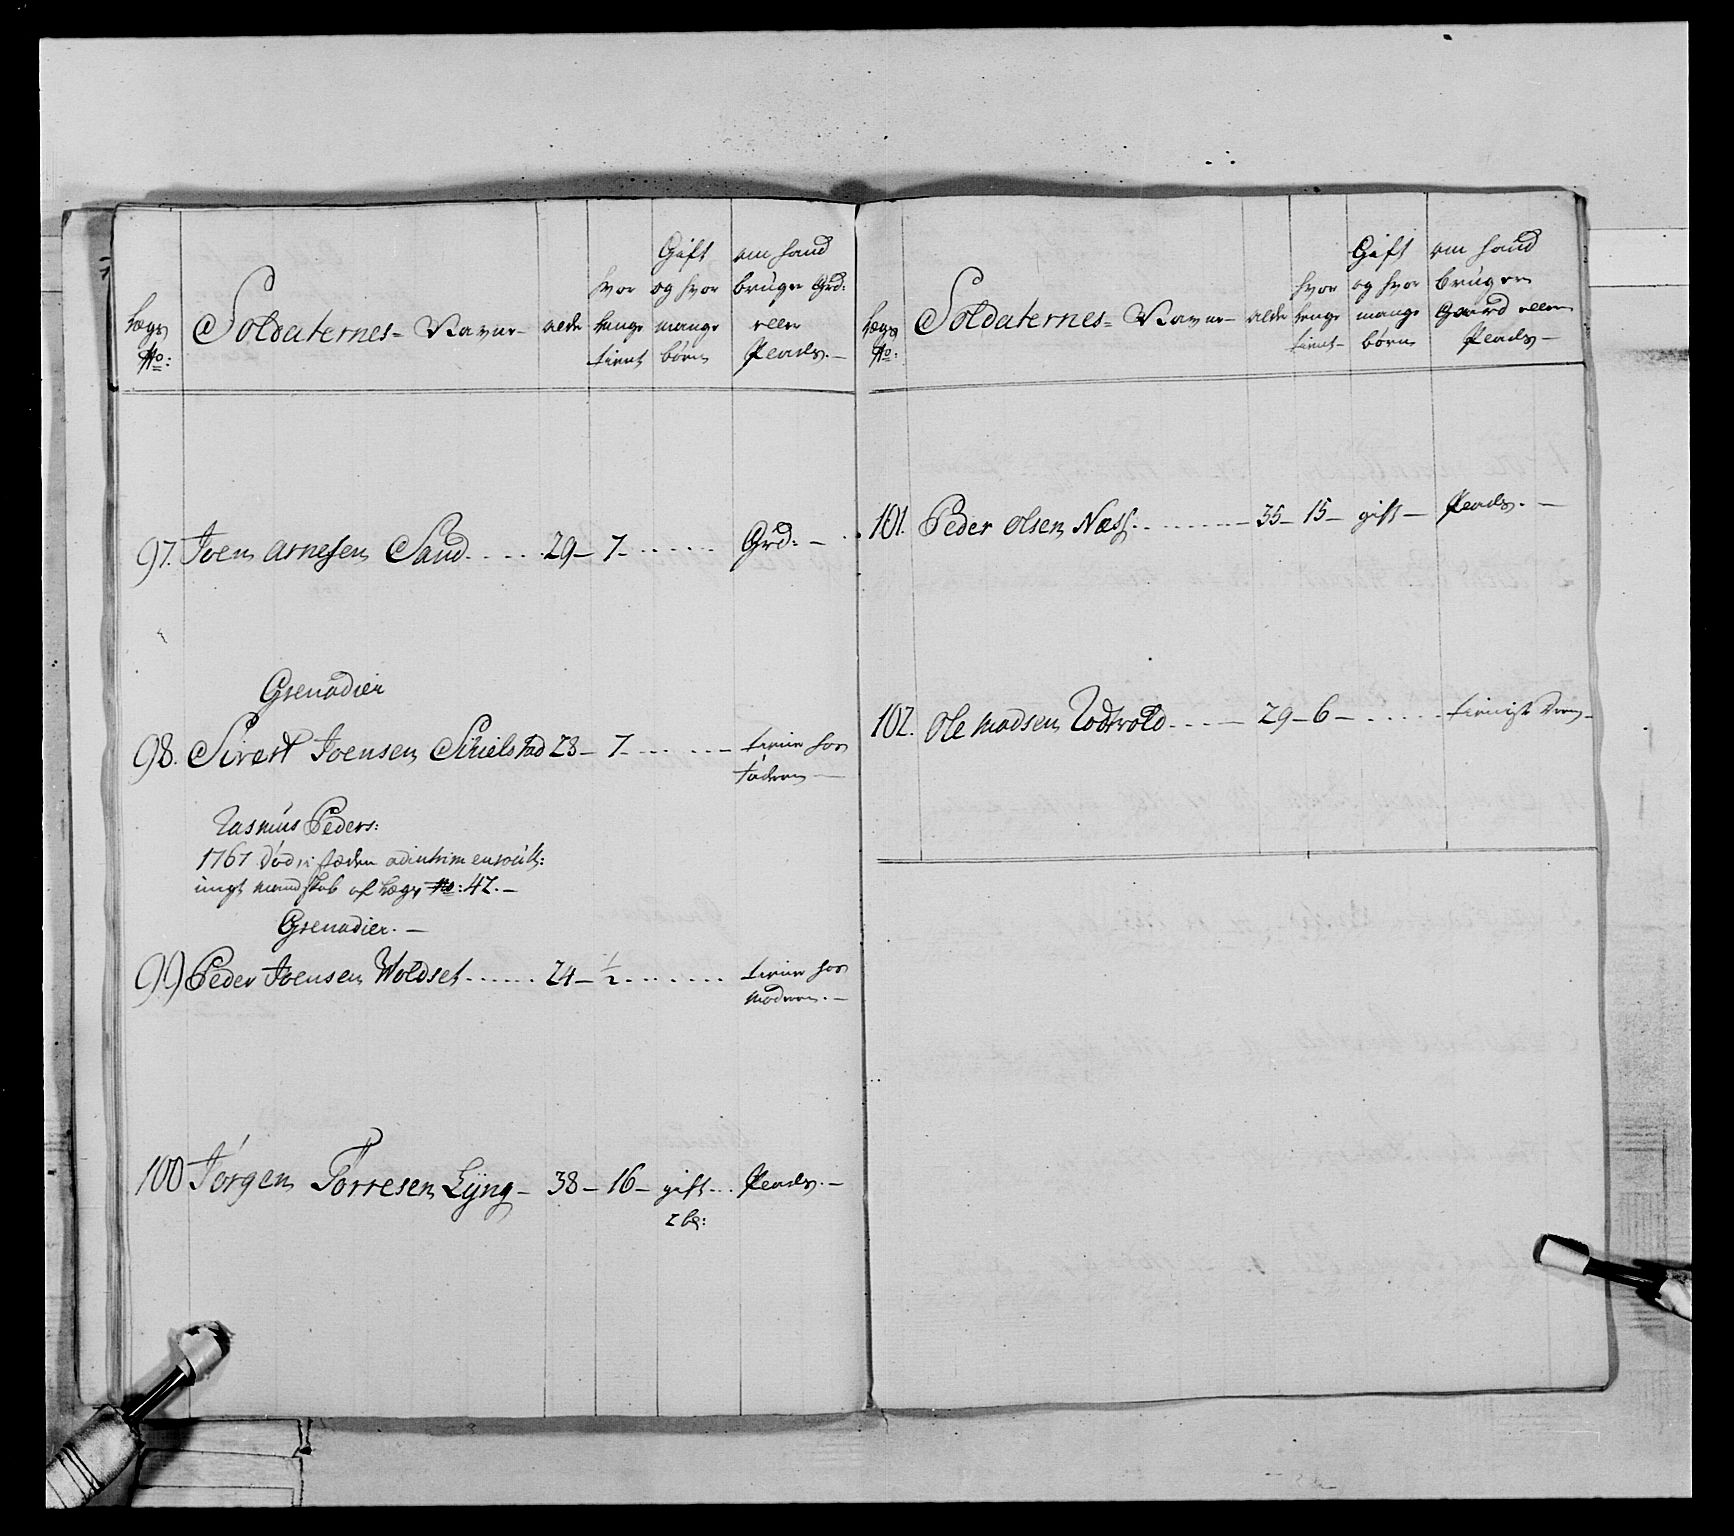 Lægs No: Soldaternes Navne alder hvor længe tient Gift og hvor mange børn om hand bruger Grd: eller Plads.
97. Joen Arnesen Sand 29 7 Grd:
Grenadier
98. Sivert Joensen Schielstad 28 7 tiener hos
faderen
Rasmus Peders:
1767 død i stæden
ungt mandskab af Lægs No: 42.
Grenadier.
99 Peder Joensen Woldset 24 1/2 tiener hos
moderen.
100 Jørgen Torresen Lÿng 38 16 gift Plads.
2 bø:
Lægs No: Soldaternes Navne alder hvor længe tient Gift og hvor mange børn om hand bruger Gaard eller Plads
101. Peder Olsen Næss. 35 15 gift Plads.
102. Ole Madsen Rodvold 29 6